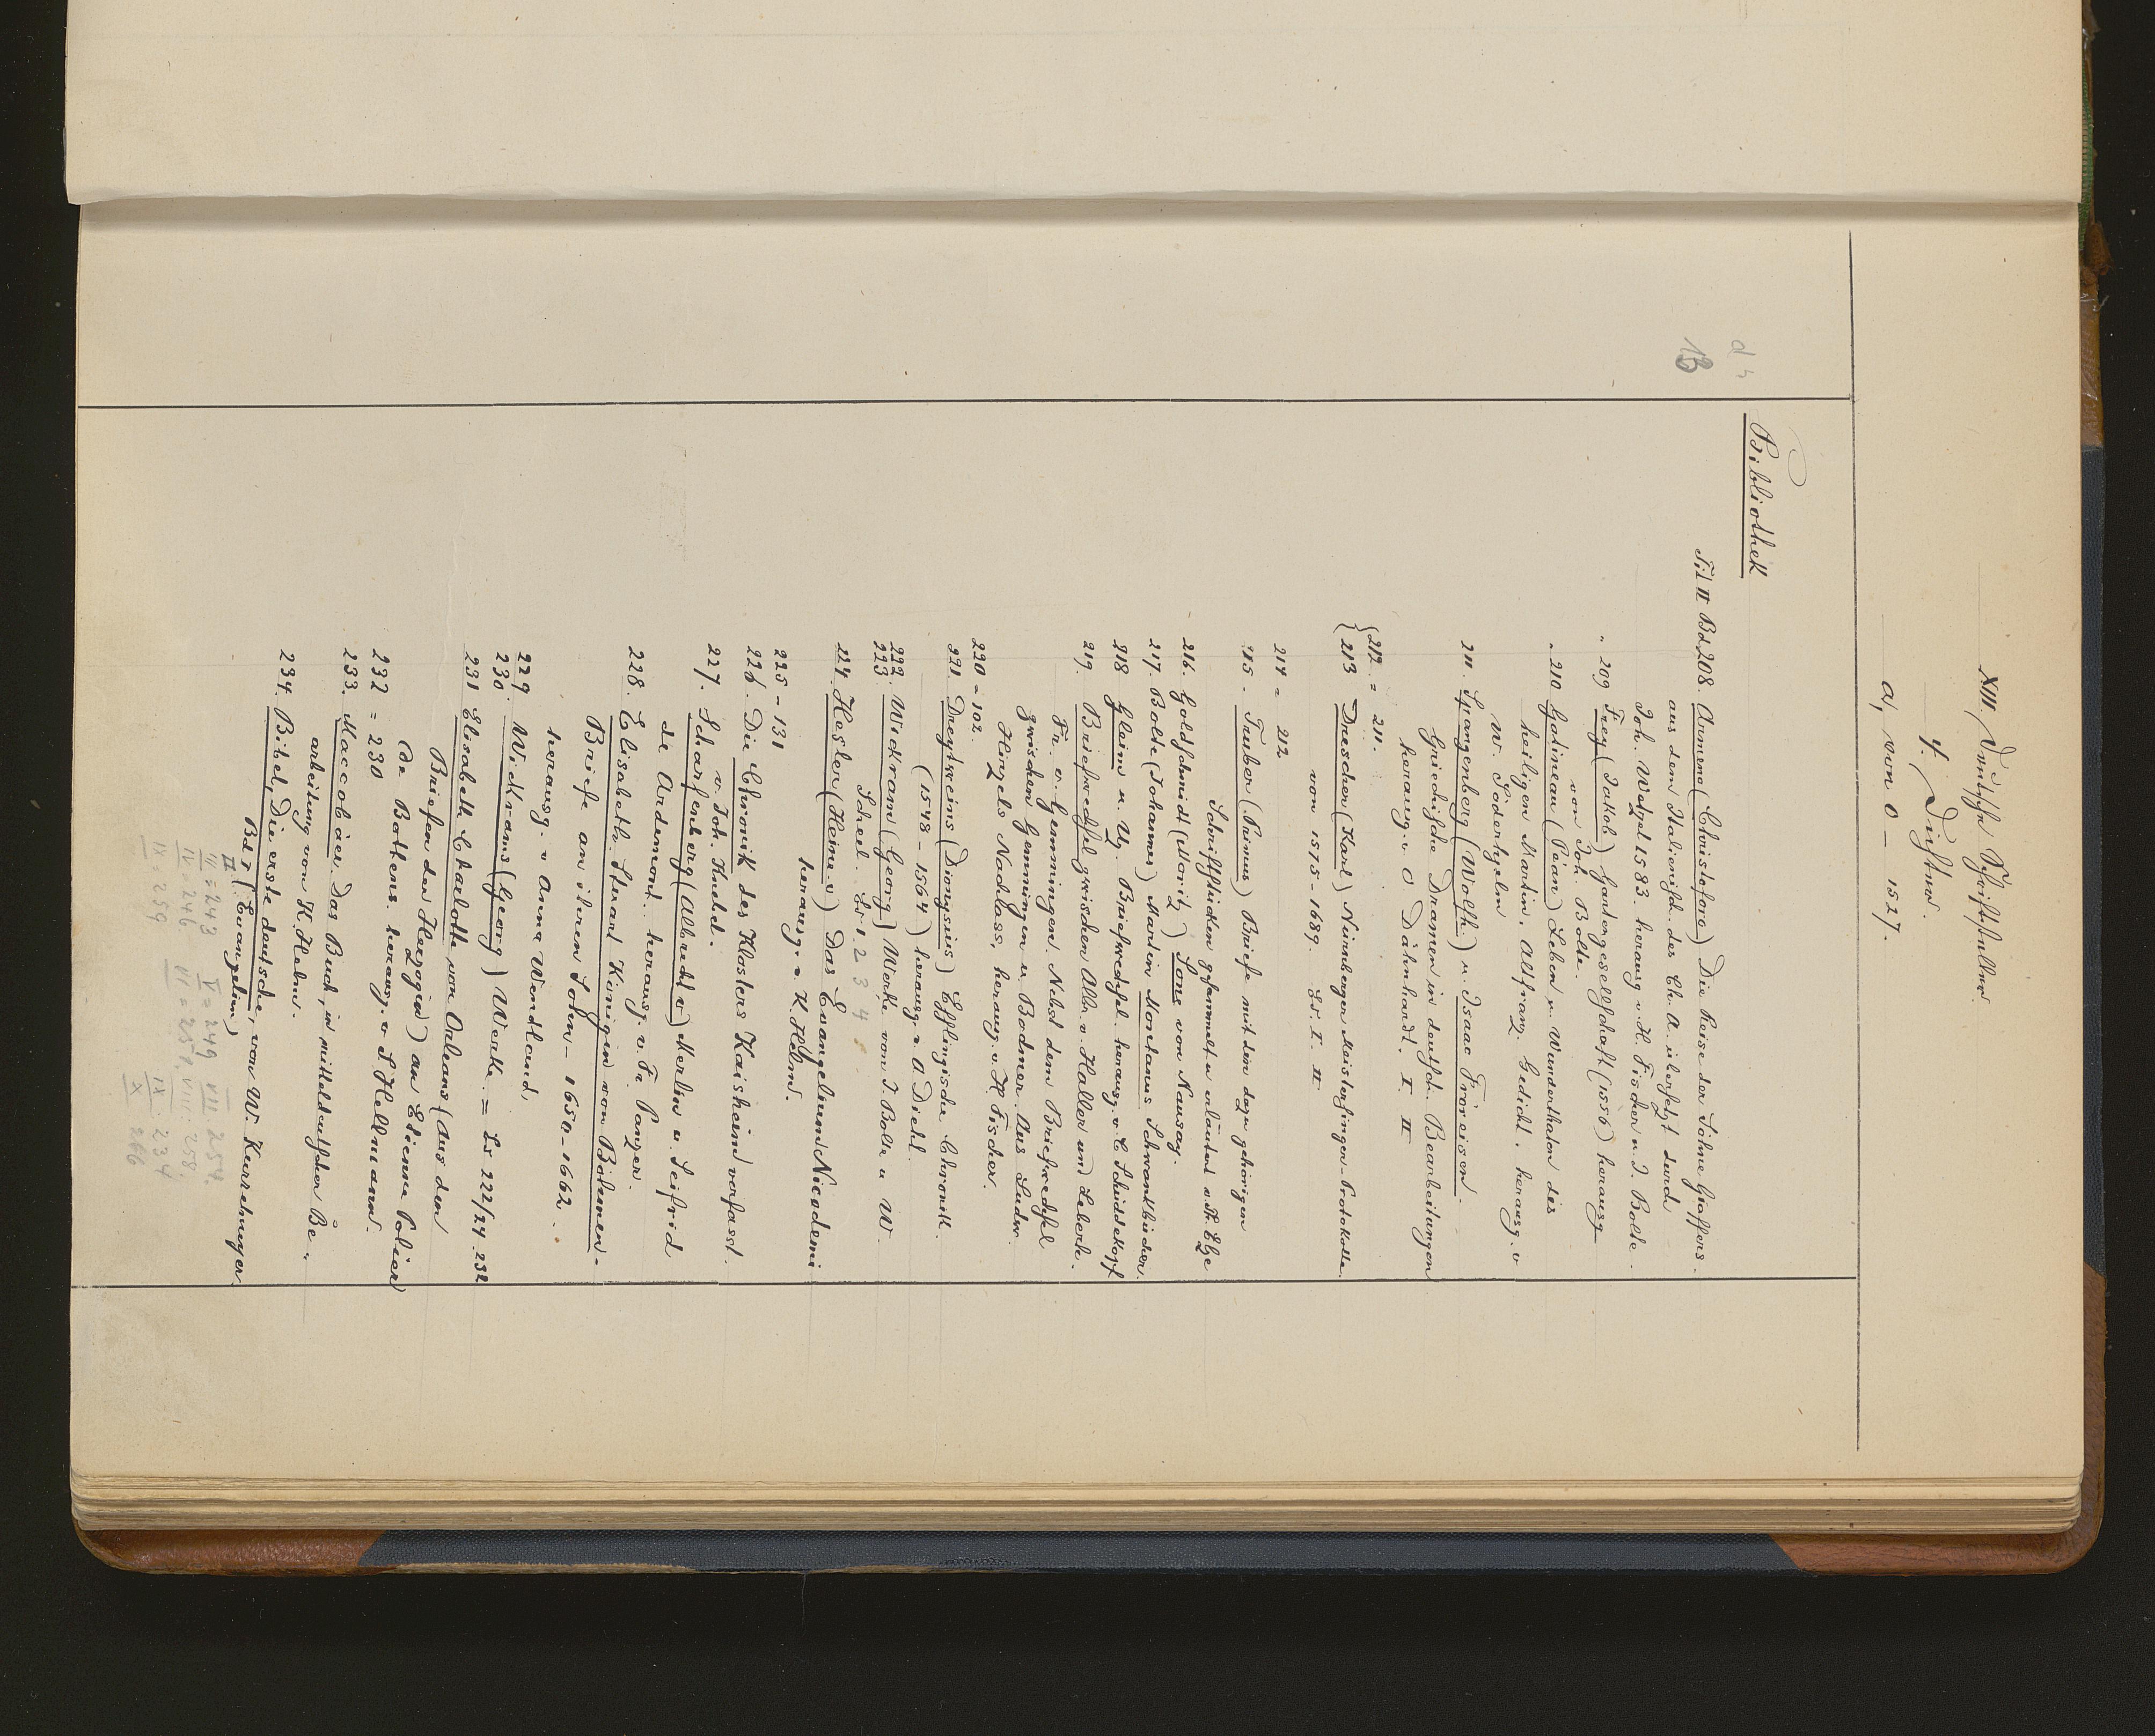 XIII, Deutsche Schriftsteller.
4. Dichter.
a, von 0 – 1527.
13
Bibliothek
Bd 208. Armeno (Christoforo) Die Reise der Söhne Giaffers.
aus dem Italienisch. des Ch. A. übersetzt durch
Joh. Wetzel 1583. herausg v. H. Fischer u. J. Bolte.
" 209 Frey (Jakob) Gartengesellschaft (1556) herausg
von Joh. Bolte.
" 210 Gatineau (Péan) Leben u. Wunderthaten des
heiligen Martin, Altfranz. Gedicht. herausg. v
W. Söderhjelm
211. Spangenberg (Wolfh.) u. Isaac Fröreisen.
Griechische Dramen in deutsch. Bearbeitungen
herausg. v. O. Dähnhardt. I. II
212. = 211.
213 Drescher (Karl) Nürnberger Meistersinger-Protokolle
von 1575–1689. I. II
214 = 212
215. Truber (Primus) Briefe mit den dazu gehörigen
Schriftstücken gesammelt u. erläutert v. Th. Elze
216. Goldschmidt (Moritz) Sone von Nausay.
217. Bolte (Johannes) Martin Montanus Schwankbücher.
218 Gleim u. Uz. Briefwechsel. herausg. v. C Schüddekopf
219. Briefwechsel zwischen Albr. v. Haller und Eberh.
Fr. v. Gemmingen. Nebst dem Briefwechsel
zwischen Gemmingen u. Bodmer. Aus Ludw.
Hirzels Nachlass, herausg. v. H. Fischer.
220 = 102
221. Dreytweins (Dionysius) Esslingische Chronik.
(1548–1564) herausg. v A Diehl.
222.
223. Wickram (Georg) Werke von J. Bolte u W.
Scheel. 1 2 3 4
224. Hesler (Heinr. v) Das Evangelium Nicodemi
herausg. v. K. Helm.
225 = 131
226. Die Chronik des Klosters Kaisheim verfasst.
v. Joh. Knebel.
227. Scharfenberg (Albrecht v.) Merlin u. Seifrid
de Ardemont. herausg. v. Fr. Panzer.
228. Elisabeth Stuart Königin von Böhmen.
Briefe an ihren Sohn – 1650–1662.
herausg. v Anna Wendland,
229
230. Wickrams (Georg) Werke. = 222/24. 232
231 Elisabeth Charlotte von Orleans (Aus den
Briefen der Herzogin) an Etienne Polier
de Bottens. herausg. v. S Hellmann.
232 = 230
233. Maccobäer. Das Buch, in mitteldeutscher Be-
arbeitung von K. Helm.
234. Bibel, Die erste deutsche, von W. Kurrelmeyer.
Bd I (Evangelien)
II
III = 243 V = 249 VII 254.
IV = 246. VI = 251, VIII: 258.
IX = 259 IX: 234
X 266